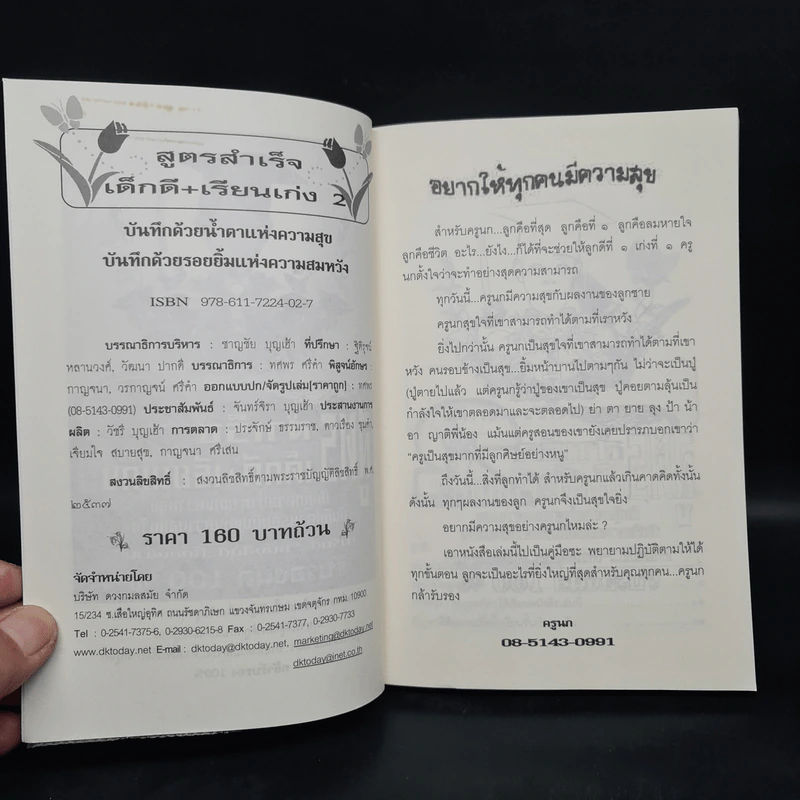 สูตรสำเร็จ
เด็กดี+เรียนเก่ง 2
บันทึกด้วยน้ำตาแห่งความสุข
บันทึกด้วยรอยยิ้มแห่งความสมหวัง
ISBN 978-611-7224-02-7
บรรณาธิการบริหาร : ชาญชัย บุญเฮ้า ที่ปรึกษา :
หลานวงศ์, วัฒนา ปากดี บรรณาธิการ : ทศพร ศรีคำ พิสูจน์อักษร :
กาญจนา, วรกาญจน์ ศรีคำ ออกแบบปก/จัดรูปเล่ม[ราคาถูก] : ทศพร
(08-5143-0991) ประชาสัมพันธ์ : จันทร์จิรา บุญเฮ้า ประสานงานการ
ผลิต : วัชรี บุญเฮ้า การตลาด : ประจักษ์ ธรรมราช, ดาวเรือง ขุมคำ,
เจียมใจ สบายสุข, กาญจนา ศรีเสน
สงวนลิขสิทธิ์ : สงวนลิขสิทธิ์ตามพระราชบัญญัติลิขสิทธิ์ พ.ศ.
๒๕๓๗
ราคา 160 บาทถ้วน
จัดจำหน่ายโดย
บริษัท ดวงกมลสมัย จำกัด
15/234 ซ.เสือใหญ่อุทิศ ถนนรัชดาภิเษก แขวงจันทรเกษม เขตจตุจักร กทม. 10900
Tel : 0-2541-7375-6, 0-2930-6215-8 Fax : 0-2541-7377, 0-2930-7733
www.dktoday.net E-mail : dktoday@dktoday.net, marketing@dktoday.net
dktoday@inet.co.th
อยากให้ทุกคนมีความสุข
สำหรับครูนก...ลูกคือที่สุด ลูกคือที่ ๑ ลูกคือลมหายใจ
ลูกคือชีวิต อะไร...ยังไง...ก็ได้ที่จะช่วยให้ลูกดีที่ ๑ เก่งที่ ๑ ครู
นกตั้งใจว่าจะทำอย่างสุดความสามารถ
ทุกวันนี้...ครูนกมีความสุขกับผลงานของลูกชาย
ครูนกสุขใจที่เขาสามารถทำได้ตามที่เราหวัง
ยิ่งไปกว่านั้น ครูนกเป็นสุขใจที่เขาสามารถทำได้ตามที่เขา
หวัง คนรอบข้างเป็นสุข...ยิ้มหน้าบานไปตามๆกัน ไม่ว่าจะเป็นปู่
(ปู่ตายไปแล้ว แต่ครูนกรู้ว่าปู่ของเขาเป็นสุข ปู่คอยตามลุ้นเป็น
กำลังใจให้เขาตลอดมาและจะตลอดไป) ย่า ตา ยาย ลุง ป้า น้า
อา ญาติพี่น้อง แม้นแต่ครูสอนของเขายังเคยปรารภบอกเขาว่า
“ครูเป็นสุขมากที่มีลูกศิษย์อย่างหนู”
ถึงวันนี้...สิ่งที่ลูกทำได้ สำหรับครูนกแล้วเกินคาดคิดทั้งนั้น
ดังนั้น ทุกๆผลงานของลูก ครูนกจึงเป็นสุขใจยิ่ง
อยากมีความสุขอย่างครูนกไหมล่ะ ?
เอาหนังสือเล่มนี้ไปเป็นคู่มือซะ พยายามปฏิบัติตามให้ได้
ทุกขั้นตอน ลูกจะเป็นอะไรที่ยิ่งใหญ่ที่สุดสำหรับคุณทุกคน...ครูนก
กล้ารับรอง
ครูนก
08-5143-0991